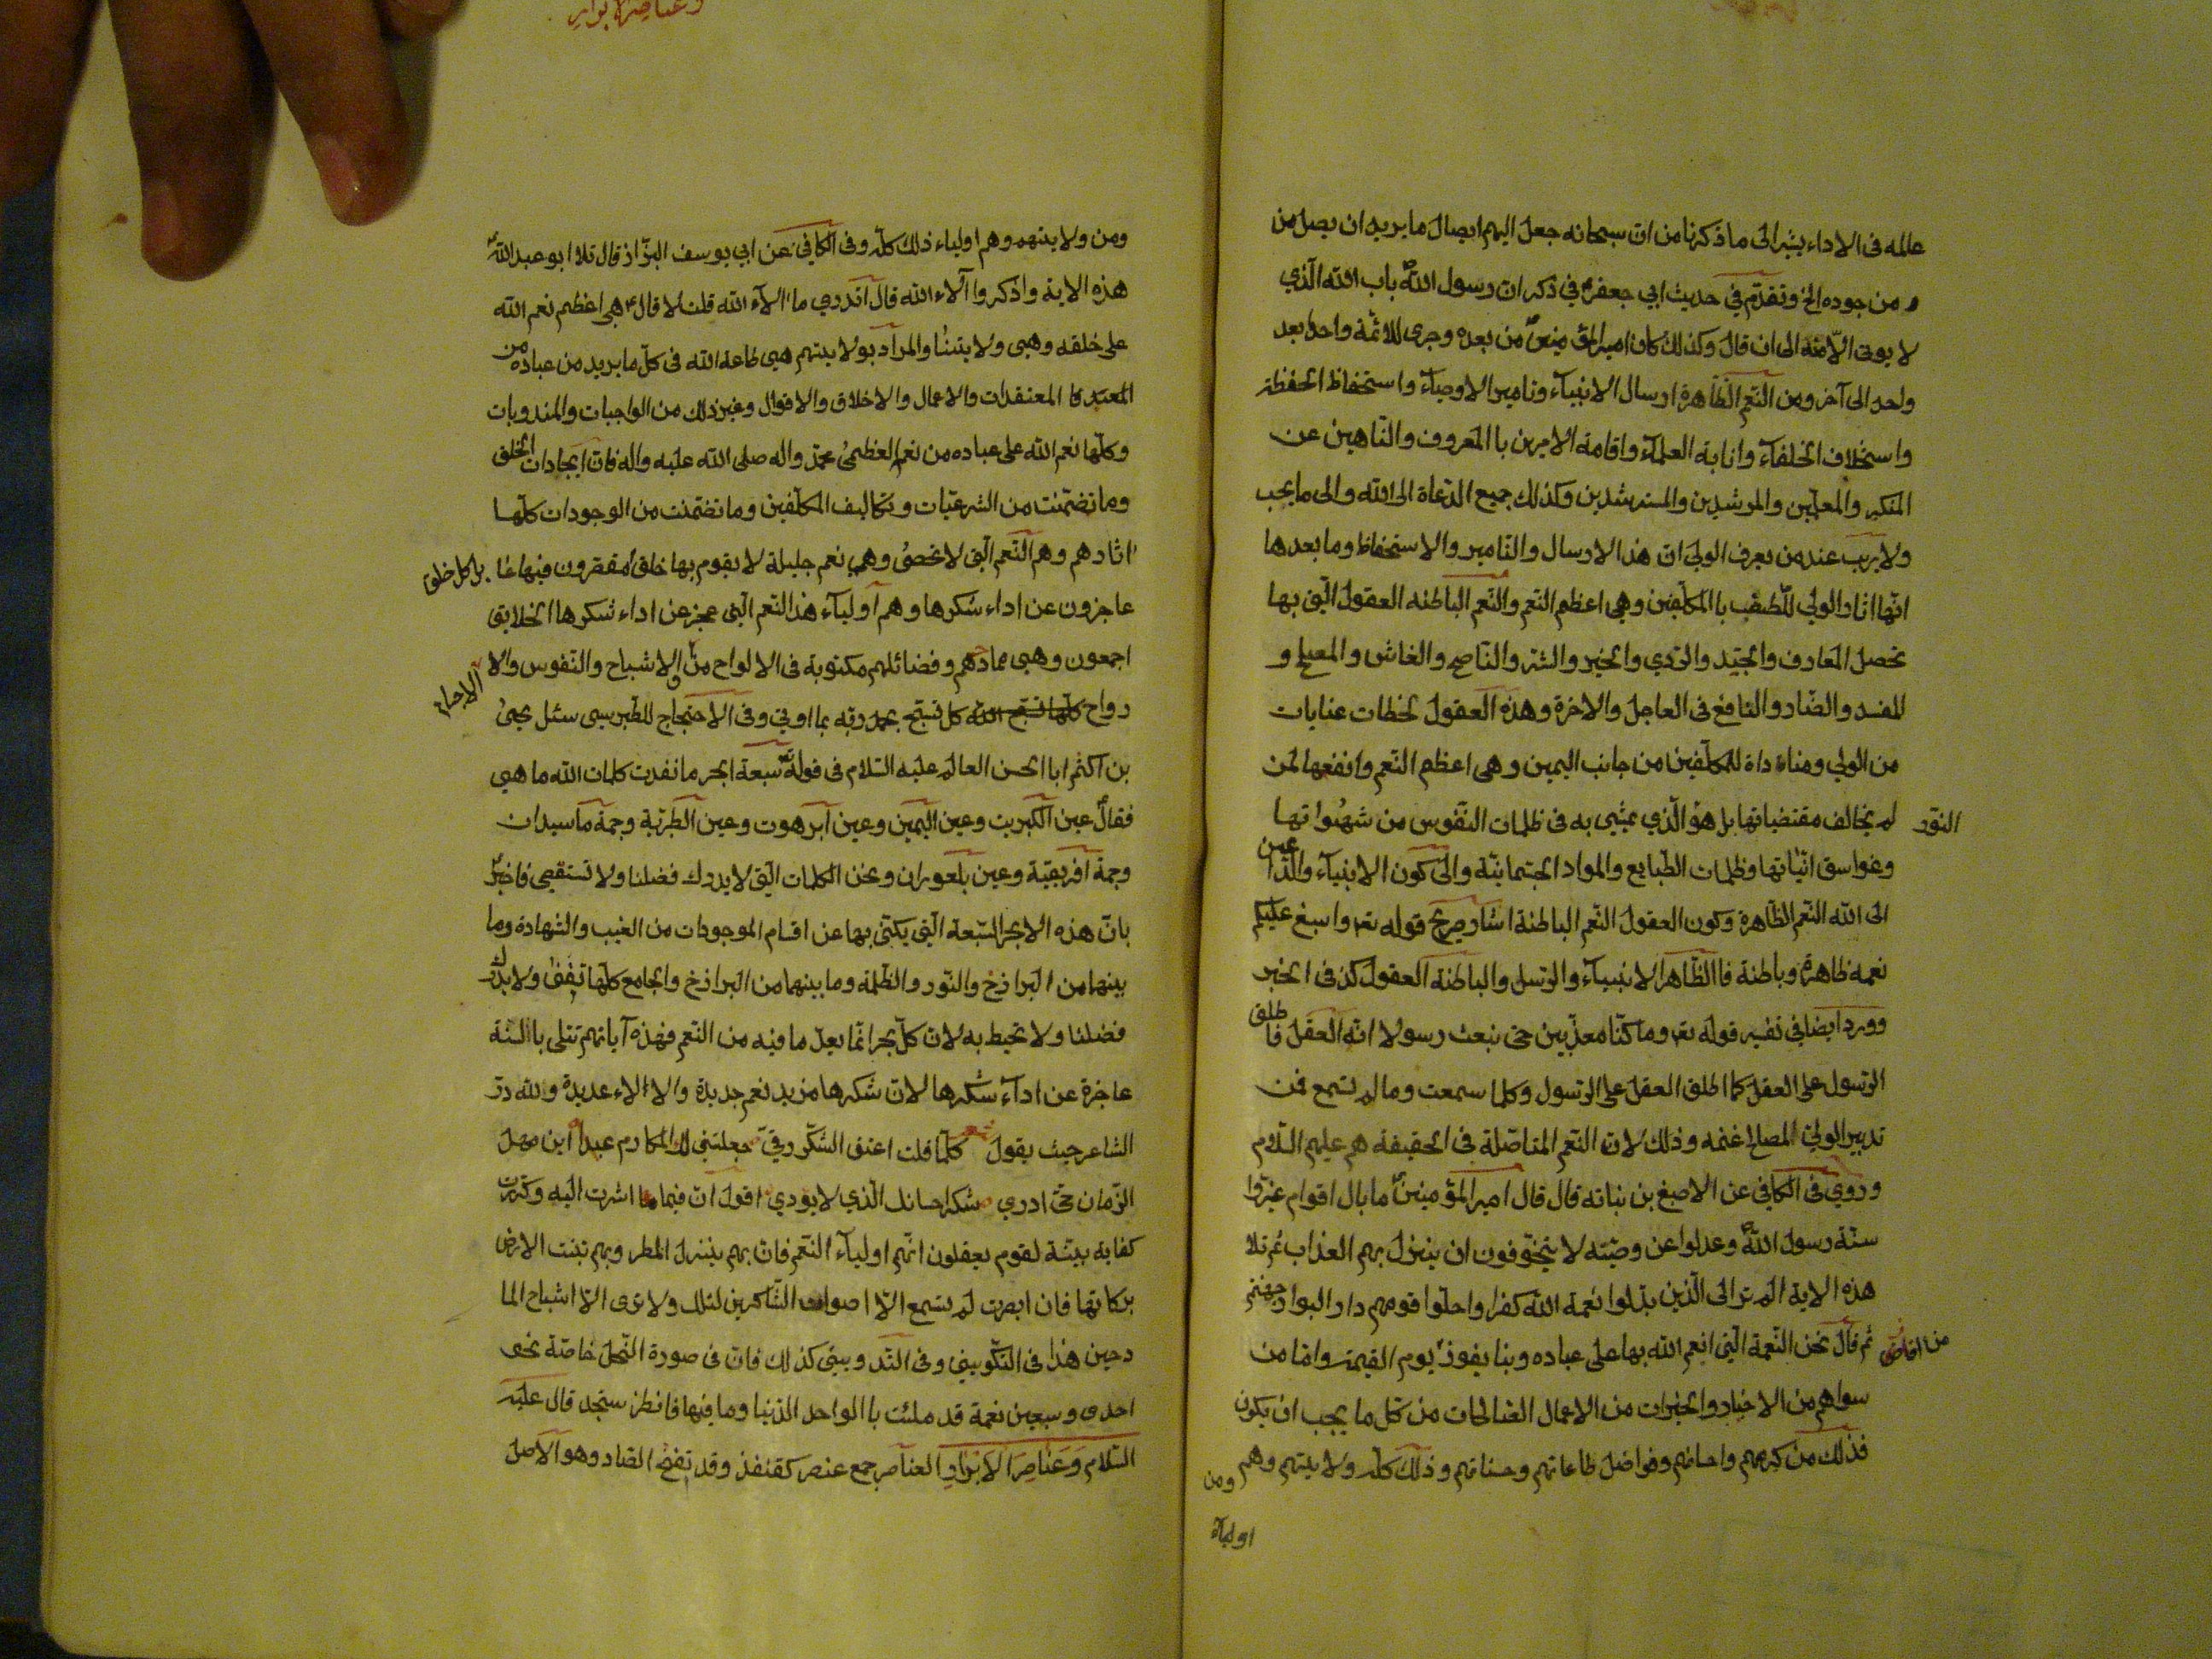 عالمه فى الاداء يشير الى ما ذكرنا من ان سبحانه جعل اليهم ايصال ما يريد ان يصل من
من جوده الخ وتقدّم فى حديث ابي جعفرع في ذكر ان رسول اللهص باب الله الّذي
لا يوتى الّا منه الى ان قال وكذلك كان امير المؤمنينع من بعده وجرى للائمّة واحدا بعد
واحد الى آخر ومن النّعم الظّاهرة ارسال الانبيآء وتامير الاوصيآء واستحفاظ الحفظة
واستخلاف الخلفآء وانابة العلمآء واقامة الامرين با المعروف والنّاهين عن
المنكر والمعلّمين والمرشدين والمسترشدين وكذلك جميع الدّعاة الى الله والى ما يحب
ولا ريب عند من يعرف الولي ان هذا الارسال والتّامير والاستحفاظ وما بعدها
انّها اثار الولي با المكلّفين وهي اعظم النّعم والنّعم الباطنه العقول الّتى بها
تحصل المعارف والجيّد والرّدي والخير والشّر والنّاصح والغاش والمصلح و
المفسد والضّار والنّافع فى العاجل والاخرة وهذه العقول لحظات عنايات
من الولي ومناداة للمكلّفين من جانب اليمين وهى اعظم النّعم وانفعها لمن
لم يخالف مقتضياتها بل هو الّذي يمشي به فى ظلمات النّفوس من شهواتها
النّور
وغواسق انيّاتها وظلمات الطّبايع والمواد الجسمانيّة والى كون الانبيآء والدّاعين
الى الله النّعم الظّاهرة وكون العقول النّعم الباطنة اشار صريح قوله تعه واسبغ عليكم
نعمه ظاهرة وباطنة فا الظّاهرة الانبيآء والرّسل والباطنة العقول كذ فى الخبر
وورد ايضا فى تفسير قوله تعه وما كنّا معذّبين حتى نبعث رسولا انّه العقل فاطلق
الرّسول على العقل كما اطلق العقل على الرّسول وكلما سمعت وما لم تسمع فمن
تدبير الولي المصلح غنمه وذلك لان النّعم المتاصّلة فى الحقيقة هم عليهم السّلام
وروي فى الكافي عن الاصبغ بن نباته قال قال امير المؤمنينع ما بال اقوام غيّروا
سنّة رسول اللهص وعدلوا عن وصيّته لا يتخوّفون ان ينزل بهم العذاب ثم تلا
هذه الاية الم تر الى الّذين بدّلوا نعمة الله كفرا واحلّوا قومهم دار البوار جهنّم
ثم قال نحن النّعمة الّتي انعم الله بها على عباده وبنا يفوز يوم القيمة وامّا من
سواهم من الاخيار والخيرات من الاعمال الصّالحات من كل ما يجب ان يكون
فذلك من كرمهم واحسانهم وفواضل طاعاتهم وحسناتهم وذلك كلّه ولايتهم وهم ومن
اوليآء
وعناصر الابرار
ومن ولايتهم وهم اولياء ذلك كلّه وفى الكافي عن ابي يوسف البزّاز قال تلا ابو عبد اللهع
هذه الاية واذكروا آلاء الله قال اتدري ما آلآء الله قلت لا قالع هى اعظم نعم الله
على خلقه وهى ولايتنا والمراد بولايتهم هى طاعة الله فى كلّ ما يريد من عباده من
المعتقدات والاعمال والاخلاق والاقوال وغير ذلك من الواجبات والمندوبات
وكلّها نعم الله على عباده من نعم العظمى محمّد واله صلى الله عليه واله فان ايجادات الخلق
وما تضمّنت من الشرعيّات وتكاليف المكلّفين وما تضمّنت من الوجودات كلّها
اثارهم وهم النّعم الّتي لا تحصى وهى نعم جليلة لا يقوم بها خلق مفتقرون فيها بل كل خلق
عاجزون عن اداء شكرها وهم اوليآء هذا النعم الّتى عجز عن اداء شكرها الخلايق
اجمعون وهى محامدهم وفضائلهم مكتوبة فى الالواح من الاشباح والنّفوس والا
رواح كل يسبّح بحمد ربّه بما اوتي وفى الاحتجاج للطّبرسى سئل يحيى
الاجسام
بن اكثم ابا الحسن العالم عليه السّلام فى قوله تعه سبعة ابحر ما نفدت كلمات الله ما هى
فقالع عين الكبريت وعين اليمين وعين ابرهوت وعين الطّبريّة وجمة ماسيدان
وجمة افريقيّة وعين بلعوران ونحن الكلمات الّتى لا يدرك فضلنا ولا تستقصى فاخبرع
بان هذه الابحر السّبعة الّتى يكنّى بها عن اقسام الموجودات من الغيب والشّهادة وما
بينهما من البرازخ والنّور والظّلمة وما بينهما من البرازخ والجامع كلّها تفنى ولا يدرك
فضلنا ولا تحيط به لان كلّ بحر انّما يعدّ ما فيه من النّعم فهذه آياتهم تتلى با السنة
عاجزة عن ادآء شكرها لان شكرها مزيد نعم جديدة والاءالاء عديدة ولله درّ
الشاعر حيث يقول كلّما قلت اعتق الشّكر رقي جعلتنى لك المكارم عبدا اين مهل
الزّمان حتى ادري شكر احسانك الّذي لا يؤدي اقول ان فيما اشرت اليه وكرّرت
كفاية بيّنة لقوم يعقلون انّهم اوليآء النّعم فان بهم ينزل المطر وبهم تنبت الارض
بركاتها فان ابصرت لم تسمع الّا اصوات الشّاكرين لتلك ولا ترى الّا اشباح الما
دحين هذا فى التّكويني وفى التّدويني كذلك فان فى صورة النّحل خاصّة نحو
احدى وسبعين نعمة قد ملئت با الواحد الدّنيا وما فيها فانظر ستجد قال عليه
السّلام وَعَناصِرَ الاَبْرارِ العناصر جمع عنصر كقنفذ وقد تفتح الصّاد وهو الاصل